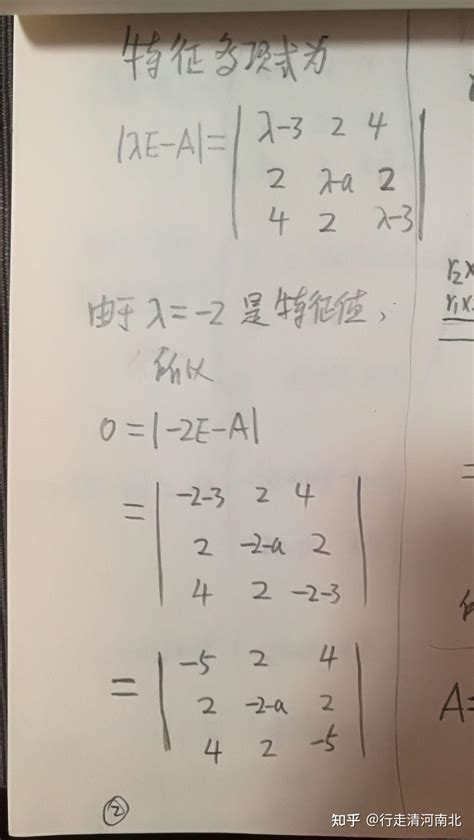 特征多项式为
|λE-A|= | λ-3 2 4 |
2 λ-a 2
4 2 λ-3
由于 λ=-2 是特征值,
所以
0=|-2E-A|
= | -2-3 2 4 |
2 -2-a 2
4 2 -2-3
= | -5 2 4 |
2 -2-a 2
4 2 -5
②
r₂x
r₁x
=
A=
知乎 @行走清河南北